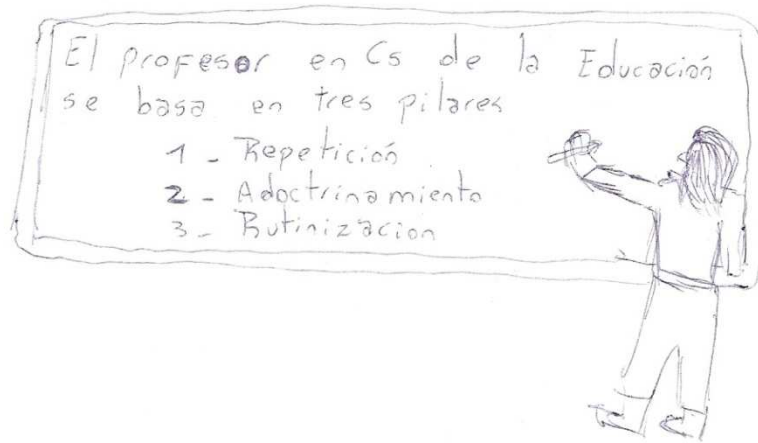 El profesor en Cs de la Educación
se basa en tres pilares
1 - Repetición
2 - Adoctrinamiento
3 - Rutinización